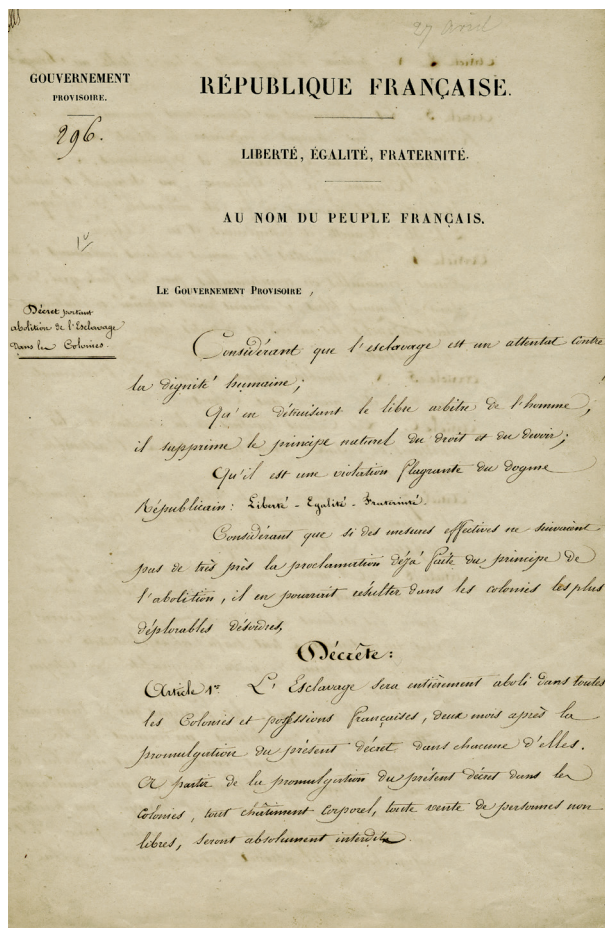 27 Avril
GOUVERNEMENT
PROVISOIRE.
296.
RÉPUBLIQUE FRANÇAISE.
LIBERTÉ, ÉGALITÉ, FRATERNITÉ.
AU NOM DU PEUPLE FRANÇAIS.
LE GOUVERNEMENT PROVISOIRE,
Décret portant
abolition de l'Esclavage
dans les Colonies.
Considérant que l'esclavage est un attentat contre
la dignité humaine;
Qu'en détruisant le libre arbitre de l'homme,
il supprime le principe naturel du droit et du devoir;
Qu'il est une violation flagrante du dogme
Républicain: Liberté - Egalité - Fraternité.
Considérant que si des mesures effectives ne suivaient
pas de très près la proclamation déjà faite du principe de
l'abolition, il en pourrait résulter dans les colonies les plus
déplorables désordres,
Décrète:
Article 1er L'Esclavage sera entièrement aboli dans toutes
les Colonies et possessions françaises, deux mois après la
promulgation du présent décret dans chacune d'elles.
A partir de la promulgation du présent décret dans les
colonies, tout châtiment corporel, toute vente de personnes non
libres, seront absolument interdits.